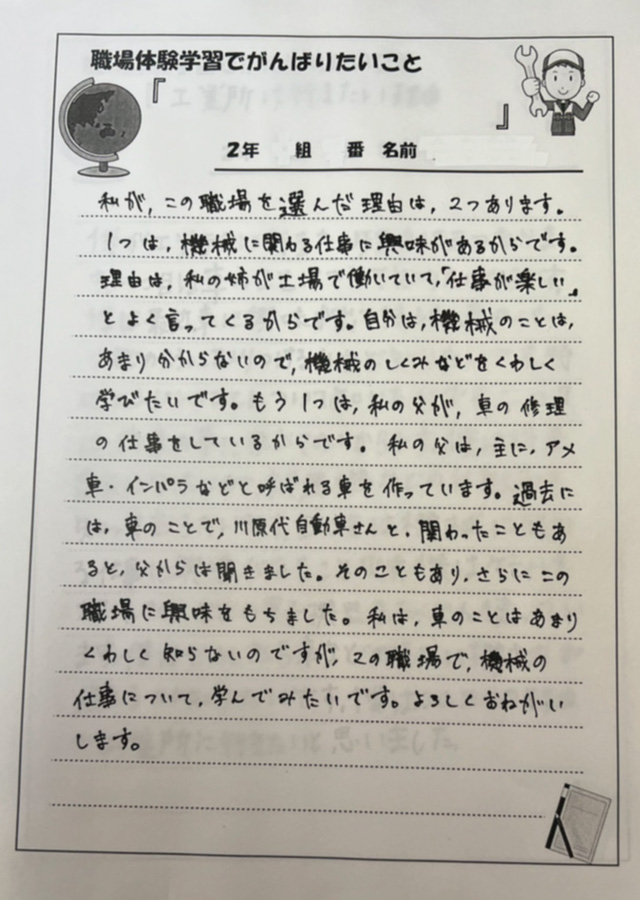 職場体験学習でがんばりたいこと
『
』
2年 組 番 名前
私が、この職場を選んだ理由は、2つあります。
1つは、機械に関わる仕事に興味があるからです。
理由は、私の姉が工場で働いていて、「仕事が楽しい」
とよく言ってくるからです。自分は、機械のことは、
あまり分からないので、機械のしくみなどをくわしく
学びたいです。もう1つは、私の父が、車の修理
の仕事をしているからです。 私の父は、主に、アメ
車・インパラなどと呼ばれる車を作っています。過去に
は、車のことで、川原代自動車さんと、関わったこともあ
ると、父からは聞きました。そのこともあり、さらにこの
職場に興味をもちました。私は、車のことはあまり
くわしく知らないのですが、この職場で、機械の
仕事について、学んでみたいです。よろしくおねがい
します。